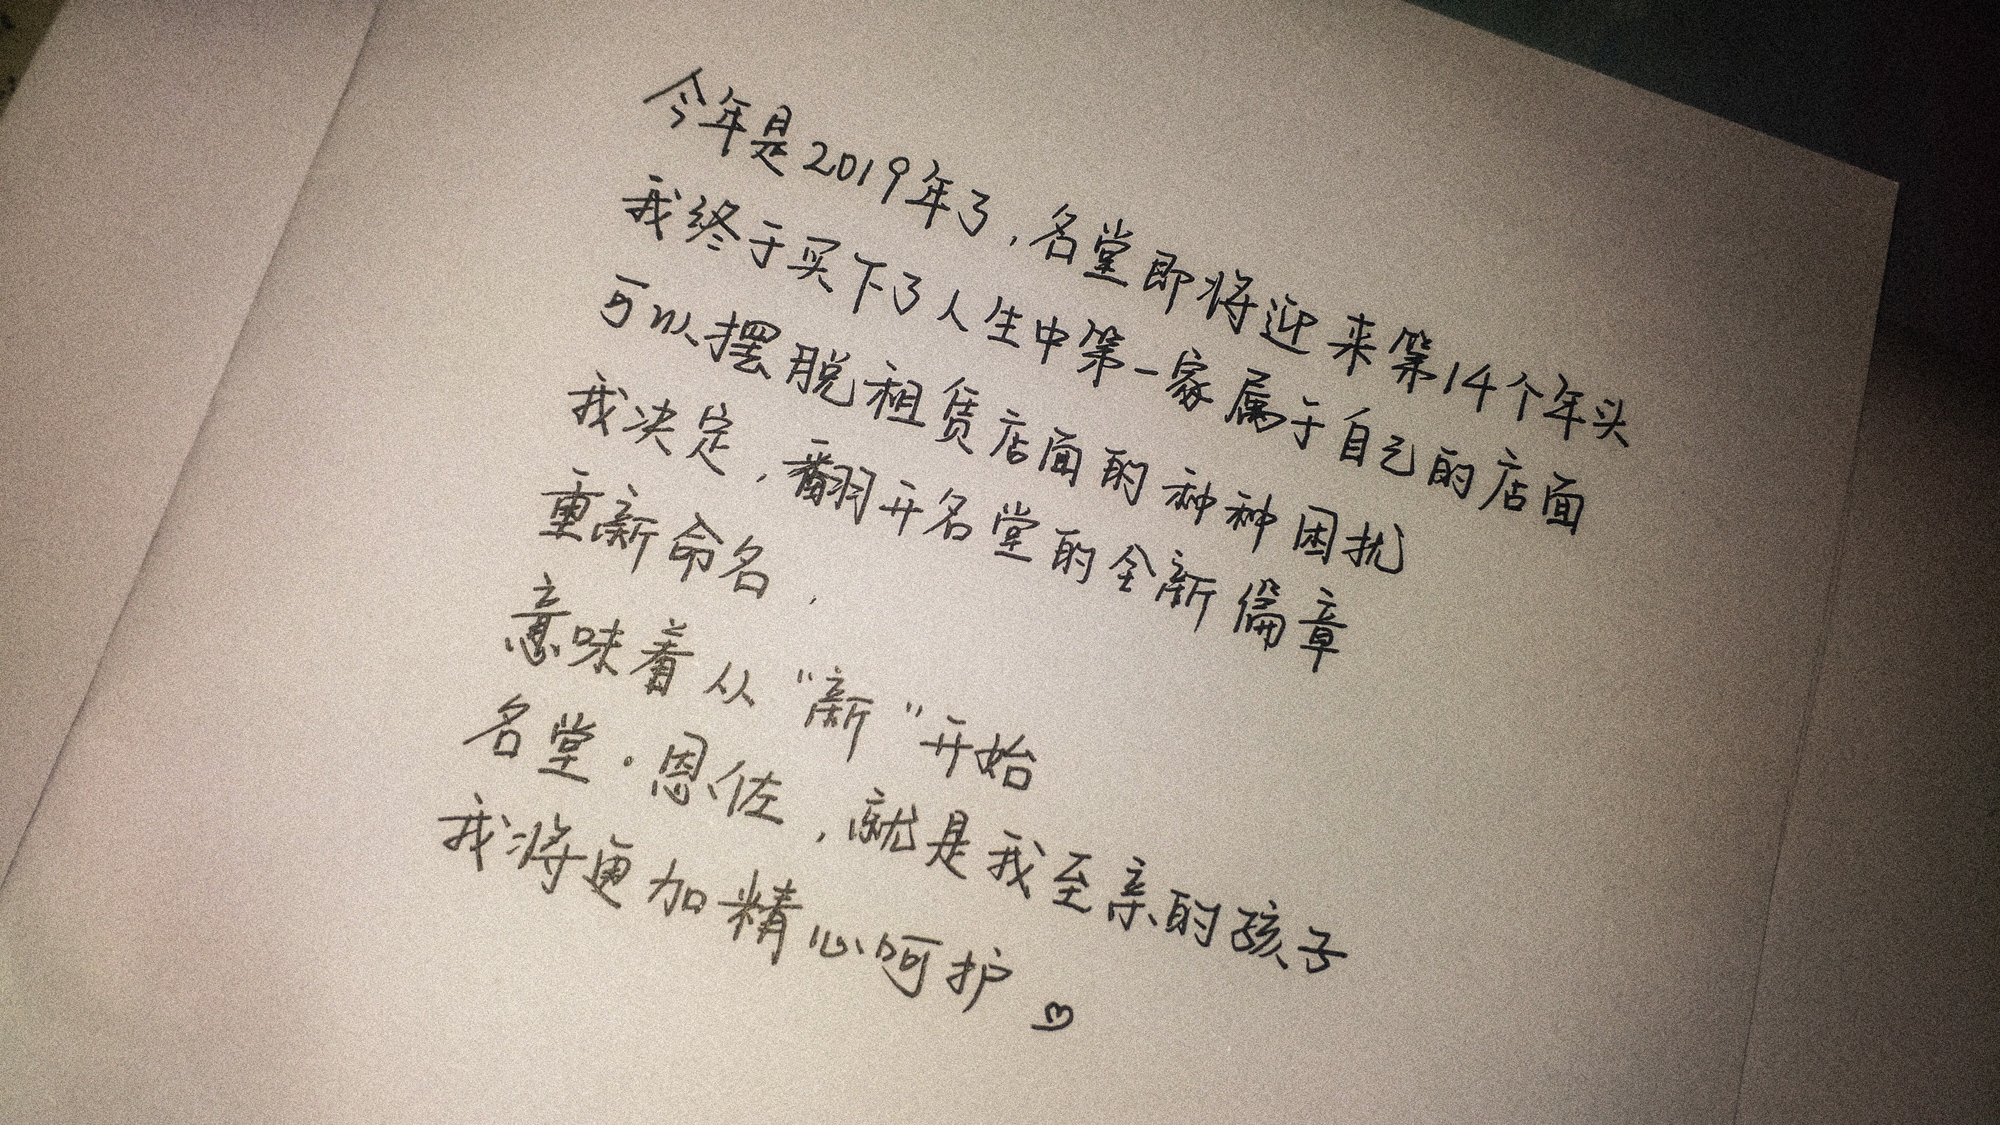 今年是2019年了,名堂即将迎来第14个年头
我终于买下了人生中第一家属于自己的店面
可以摆脱租赁店面的种种困扰
我决定,翻开名堂的全新篇章
重新命名,
意味着从“新”开始
名堂·恩佐,就是我至亲的孩子
我将更加精心呵护